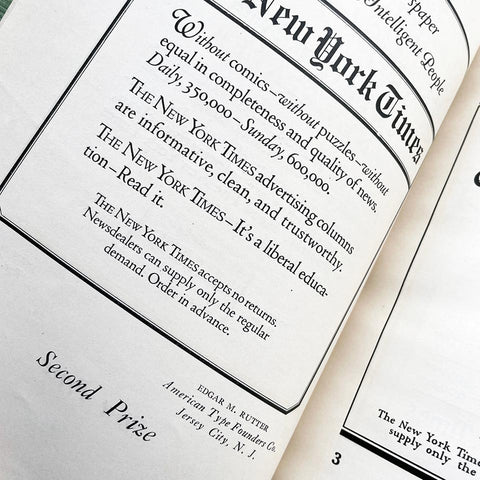 spaper
Intelligent People
New York Times
Without comics—without puzzles—without
equal in completeness and quality of news.
Daily, 350,000—Sunday, 600,000.
THE NEW YORK TIMES advertising columns
are informative, clean, and trustworthy.
THE NEW YORK TIMES—It's a liberal educa-
tion—Read it.
THE NEW YORK TIMES accepts no returns.
Newsdealers can supply only the regular
demand. Order in advance.
Second Prize
EDGAR M. RUTTER
American Type Founders Co.
Jersey City, N. J.
The New York Time
supply only the
3